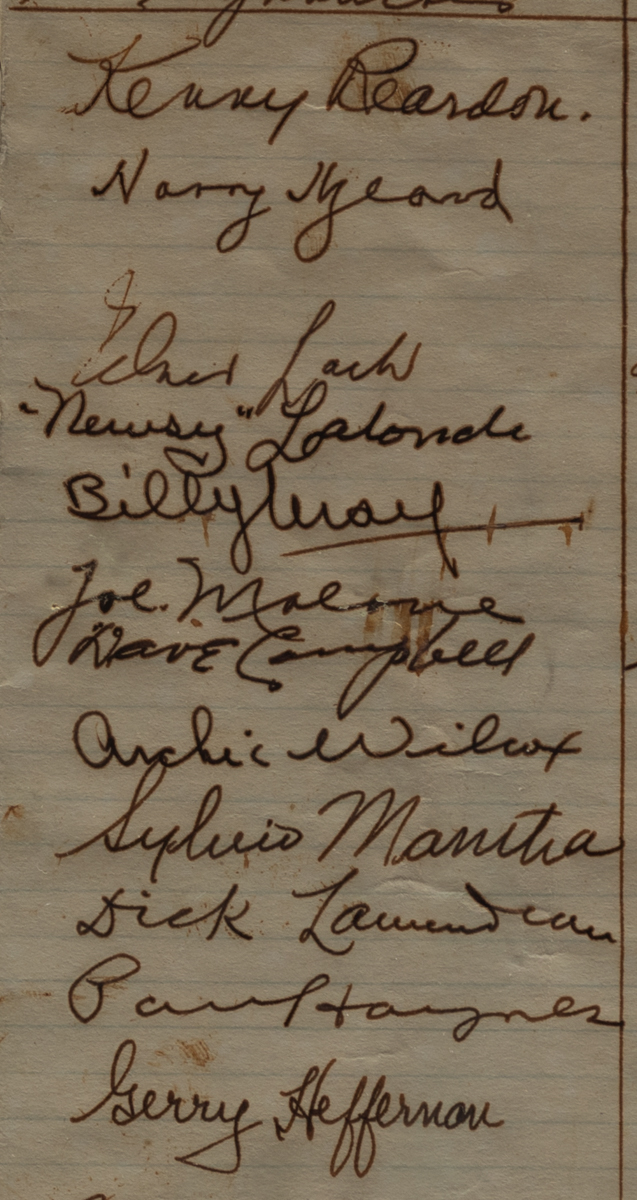 Kenny Reardon.
Elmer Lach
"Newsy" Lalonde
Billy
Joe Malone
Dave Campbell
Archie Wilcox
Sylvio Mantha
Dick
Paul Haynes
Gerry Heffernan